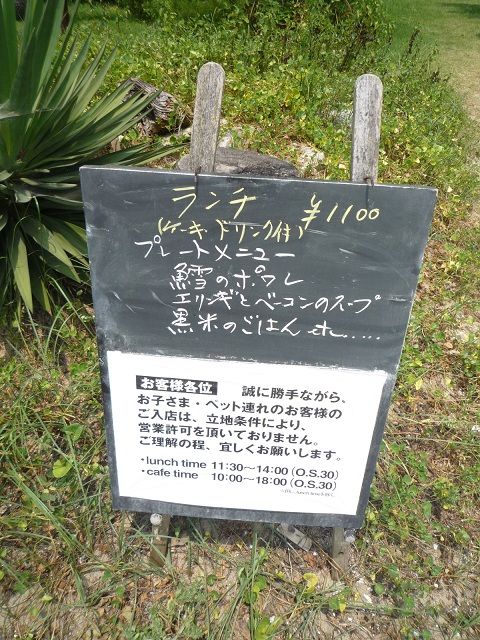 ランチ ¥1100
(ケーキ・ドリンク付)
プレートメニュー
鱈のポワレ
エリンギとベーコンのスープ
黒米のごはん etc.....
お客様各位 誠に勝手ながら、
お子さま・ペット連れのお客様の
ご入店は、立地条件により、
営業許可を頂いておりません。
ご理解の程、宜しくお願いします。
・lunch time 11:30～14:00 (O.S.30)
・cafe time 10:00～18:00 (O.S.30)